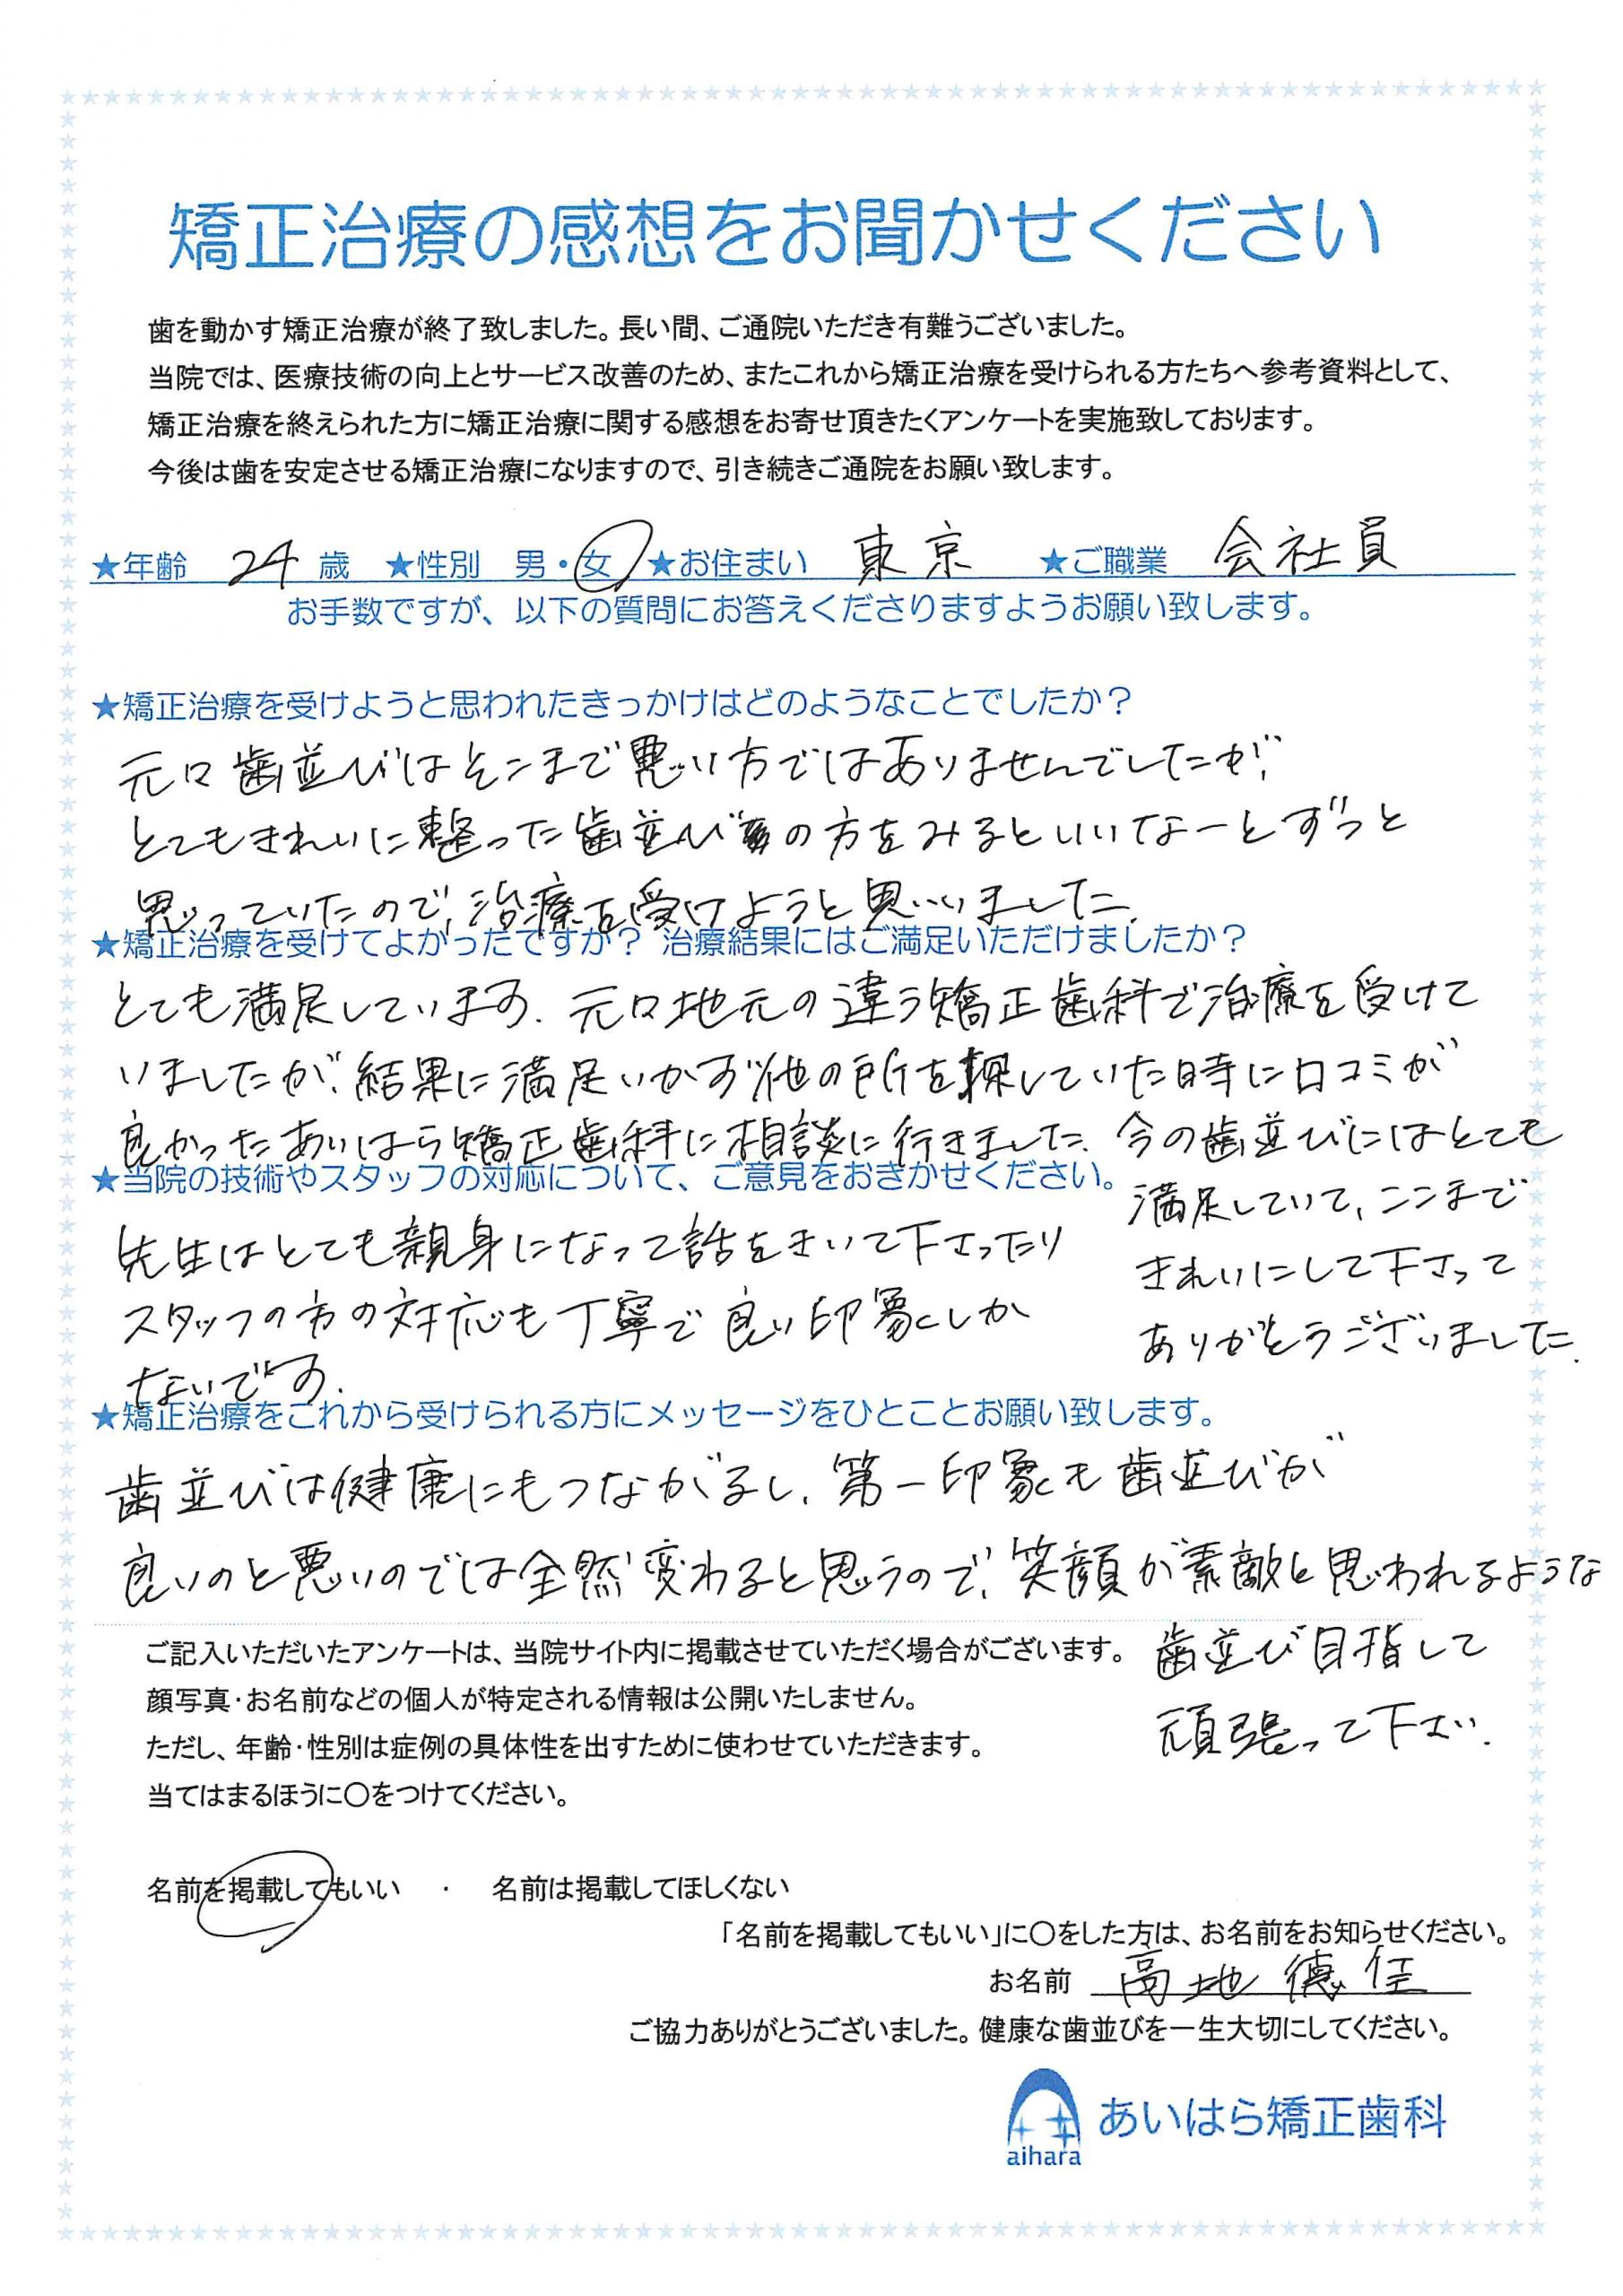 矯正治療の感想をお聞かせください
歯を動かす矯正治療が終了致しました。長い間、ご通院いただき有難うございました。
当院では、医療技術の向上とサービス改善のため、またこれから矯正治療を受けられる方たちへ参考資料として、
矯正治療を終えられた方に矯正治療に関する感想をお寄せ頂きたくアンケートを実施致しております。
今後は歯を安定させる矯正治療になりますので、引き続きご通院をお願い致します。
★年齢 24 歳 ★性別 男・女 ★お住まい 東京 ★ご職業 会社員
お手数ですが、以下の質問にお答えくださりますようお願い致します。
★矯正治療を受けようと思われたきっかけはどのようなことでしたか?
元々歯並びはそこまで悪い方ではありませんでしたが、
とてもきれいに整った歯並びの方をみるといいなーとずっと
思っていたので、治療を受けようと思いました。
★矯正治療を受けてよかったですか? 治療結果にはご満足いただけましたか?
とても満足しています。元々地元の違う矯正歯科で治療を受けて
いましたが、結果に満足いかず他の所を探していた時に口コミが
良かったあいはら矯正歯科に相談に行きました。今の歯並びにはとても
満足していて、ここまで
きれいにして下さって
ありがとうございました。
★当院の技術やスタッフの対応について、ご意見をおきかせください。
先生はとても親身になって話をきいて下さったり
スタッフの方の対応も丁寧で良い印象しか
ないです。
★矯正治療をこれから受けられる方にメッセージをひとことお願い致します。
歯並びは健康にもつながるし、第一印象も歯並びが
良いのと悪いのでは全然変わると思うので、笑顔が素敵と思われるような
歯並び目指して
頑張って下さい。
ご記入いただいたアンケートは、当院サイト内に掲載させていただく場合がございます。
顔写真・お名前などの個人が特定される情報は公開いたしません。
ただし、年齢・性別は症例の具体性を出すために使わせていただきます。
当てはまるほうに〇をつけてください。
名前を掲載してもいい ・ 名前は掲載してほしくない
「名前を掲載してもいい」に〇をした方は、お名前をお知らせください。
お名前 高地 徳佳
ご協力ありがとうございました。健康な歯並びを一生大切にしてください。
aihara あいはら矯正歯科